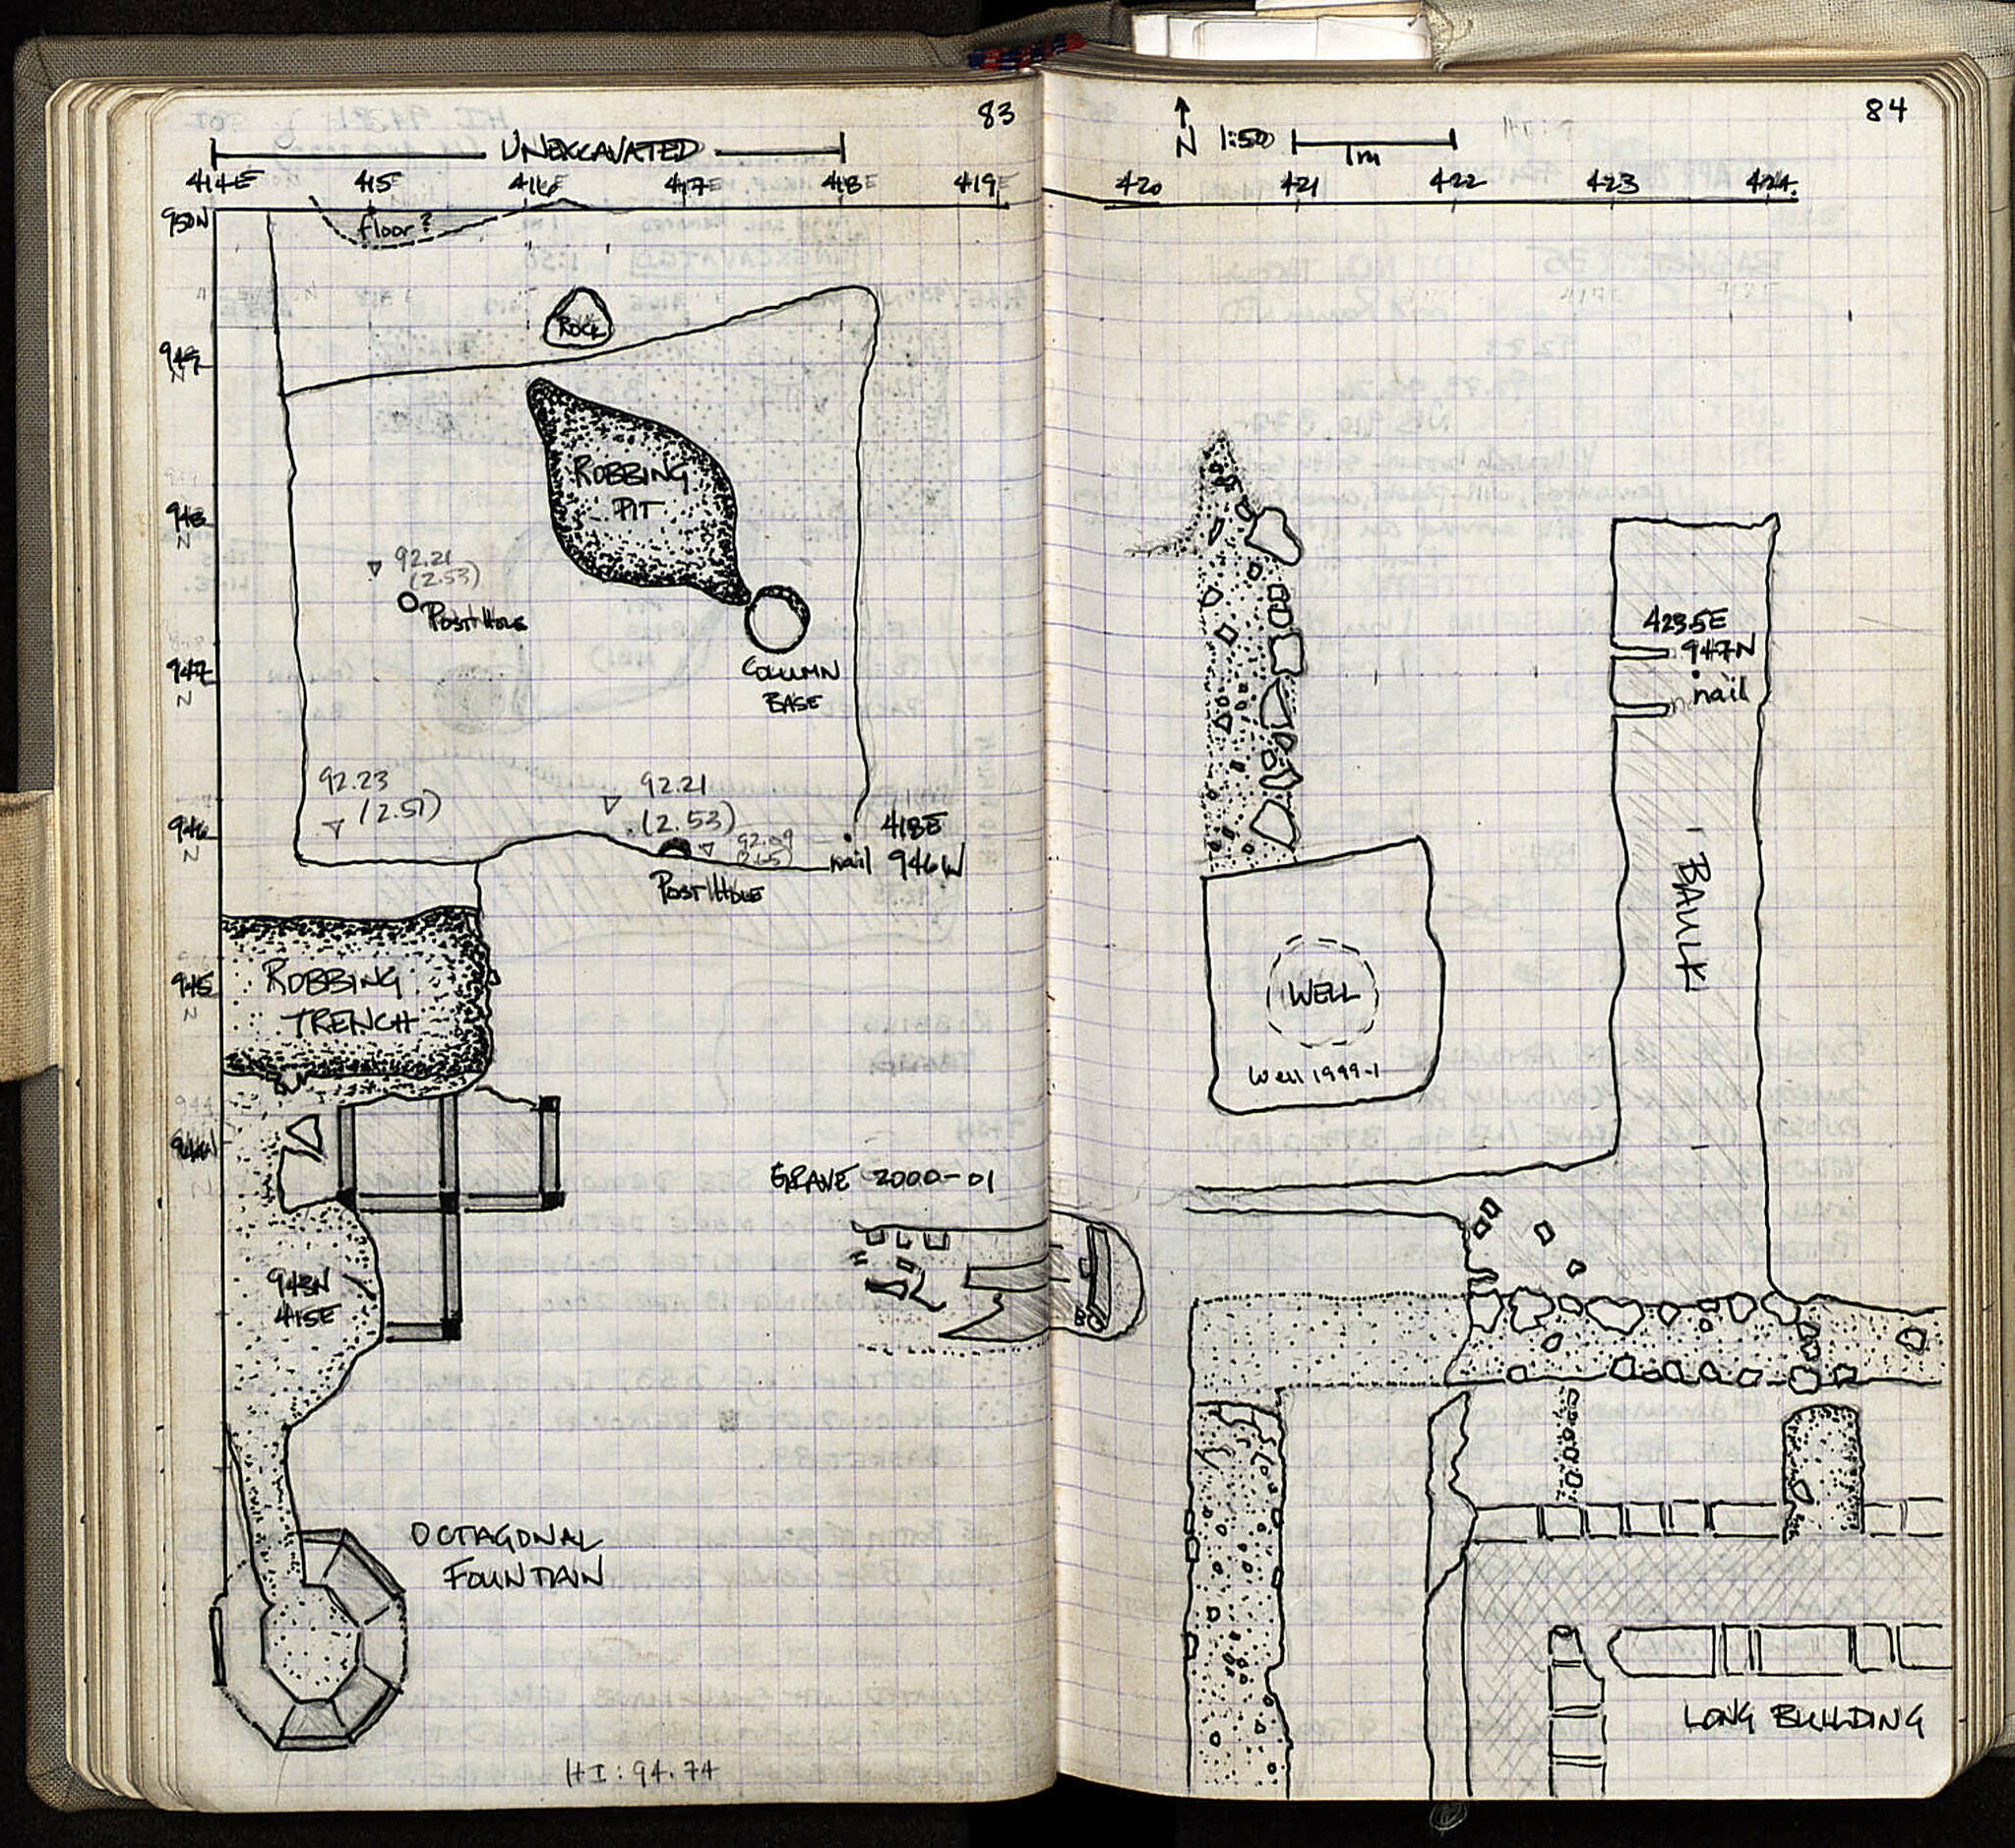 83
UNEXCAVATED
414E 415E 416E 417E 418E 419E
950N
floor?
ROCK
949
N
ROBBING
PIT
948
N
92.21
(2.53)
POST HOLE
947
N
COLUMN
BASE
92.23
(2.51)
92.21
(2.53)
946
N
418E
nail 946N
92.09
(2.65)
POST HOLE
945
N
ROBBING
TRENCH
944N
GRAVE 2000-01
943N
415E
OCTAGONAL
FOUNTAIN
HI: 94.74
84
N 1:50
1m
420 421 422 423 424
423.5E
947N
nail
BAULK
WELL
Well 1999-1
LONG BUILDING